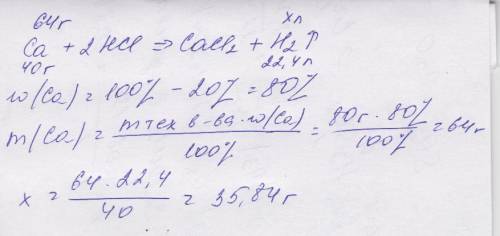 64г xл
Ca + 2HCl => CaCl₂ + H₂↑
40г 22,4л
w(Ca) = 100% - 20% = 80%
m(Ca) = m тех в-ва · w(Ca) / 100% = 80г · 80% / 100% = 64г
x = 64 · 22,4 / 40 = 35,84г